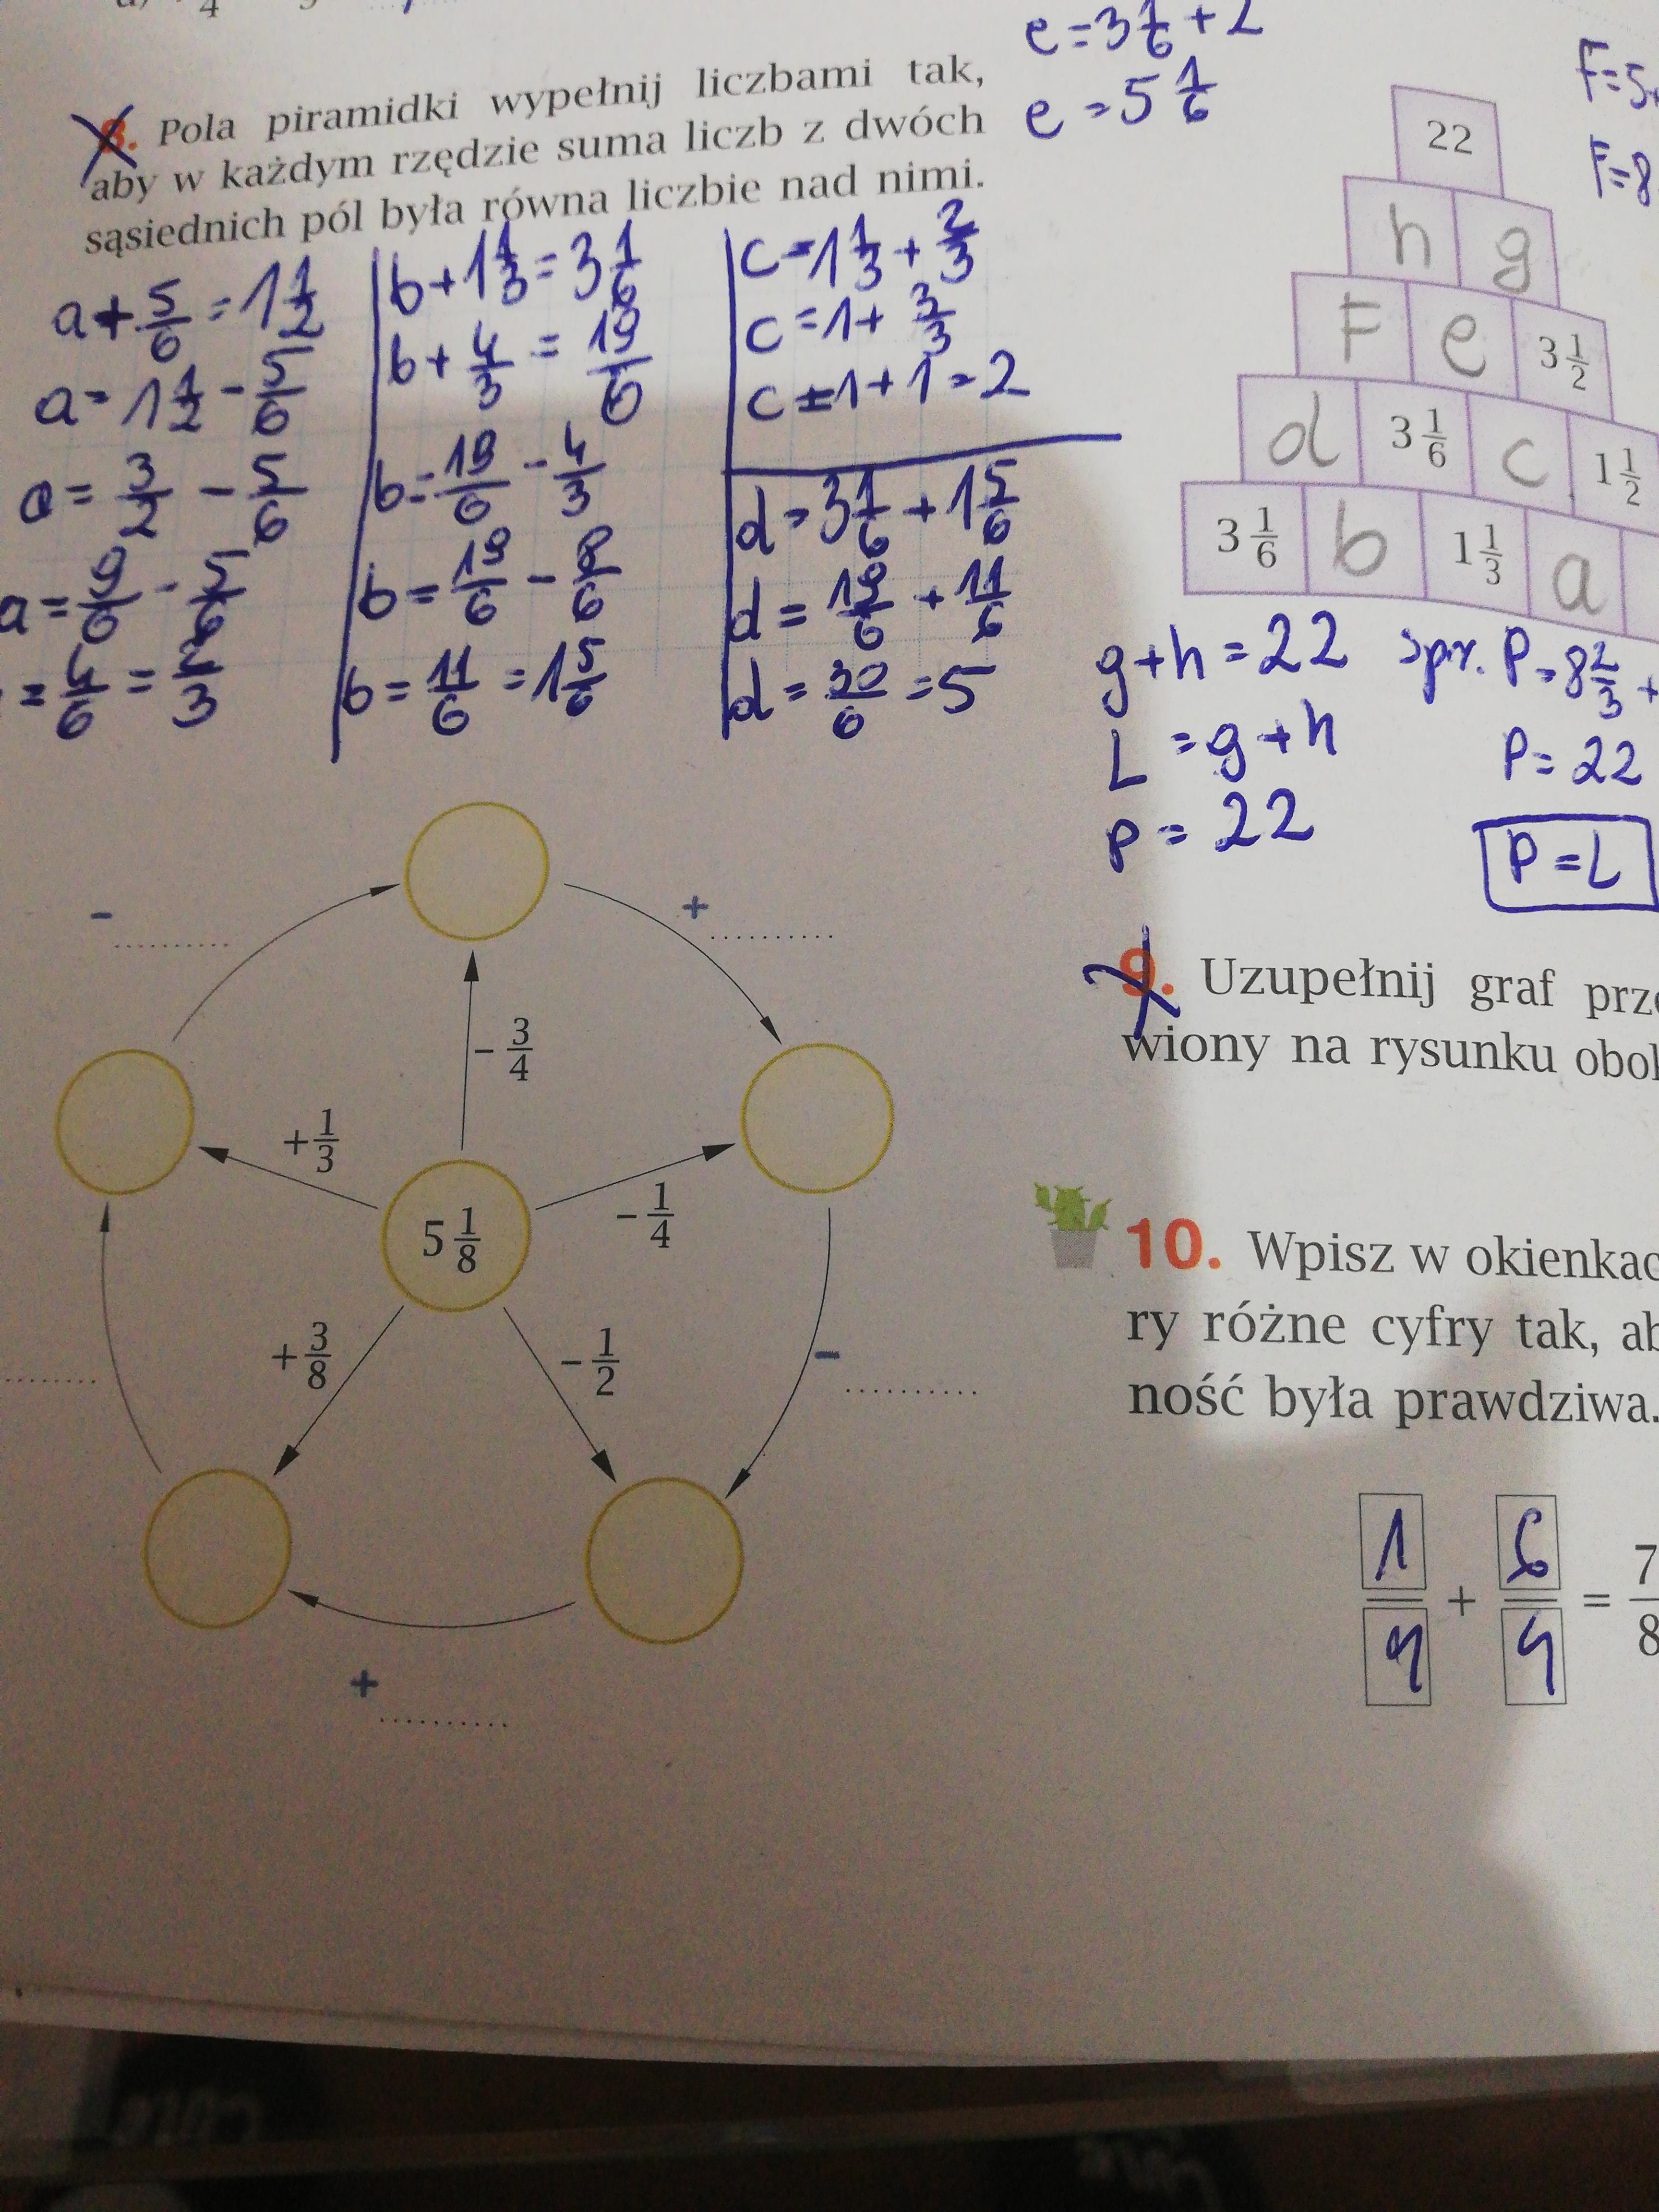 e=3 1/6 + 2
e = 5 1/6
8. Pola piramidki wypełnij liczbami tak,
aby w każdym rzędzie suma liczb z dwóch
sąsiednich pól była równa liczbie nad nimi.
a + 5/6 = 1 1/2
a = 1 1/2 - 5/6
a = 3/2 - 5/6
a = 9/6 - 5/6
= 4/6 = 2/3
b + 1 1/3 = 3 1/6
b + 4/3 = 19/6
b = 19/6 - 4/3
b = 19/6 - 8/6
b = 11/6 = 1 5/6
c = 1 1/3 + 2/3
c = 1 + 3/3
c = 1 + 1 = 2
d = 3 1/6 + 1 5/6
d = 19/6 + 11/6
d = 30/6 = 5
F=5
F=8
22
h g
F e 3 1/2
d 3 1/6 c 1 1/2
3 1/6 b 1 1/3 a
g+h = 22
L = g+h
P = 22
spr. P = 8 2/3 +
P = 22
P = L
-
+
- 3/4
+ 1/3
- 1/4
5 1/8
+ 3/8
- 1/2
-
+
9. Uzupełnij graf
wiony na rysunku
10. Wpisz w
ry różne cyfry tak,
ność była prawdziwa.
1/9 + 6/4 = 7/8